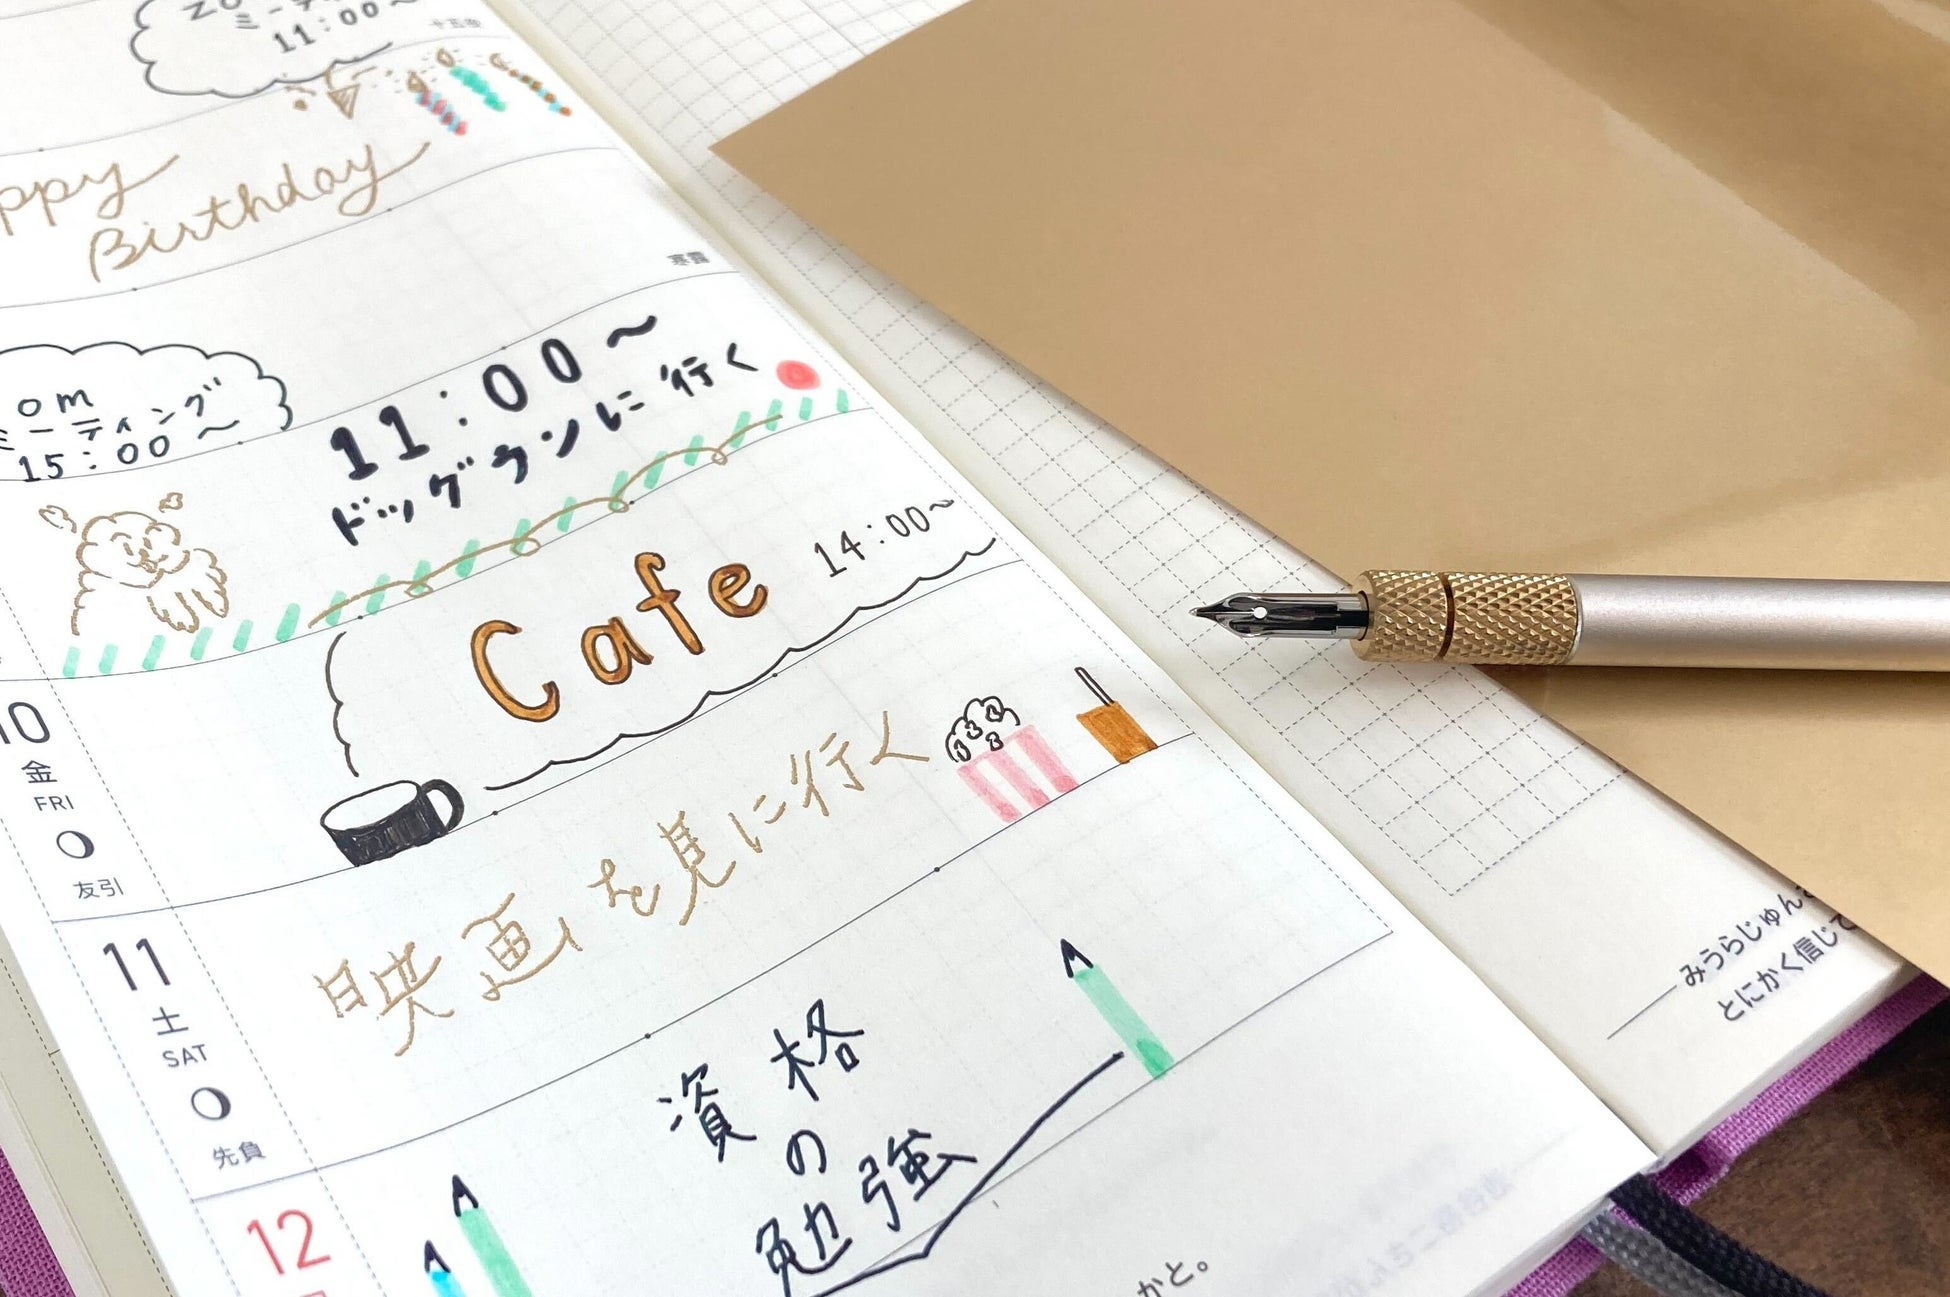 11:00〜
ppy
Birthday
寒露
om
ミーティング
15:00〜
11:00〜
ドッグランに行く
Cafe 14:00〜
10
金
FRI
友引
映画を見に行く
11
土
SAT
先負
資格
の
勉強
12
かと。
みうらじゅん
とにかく信じて